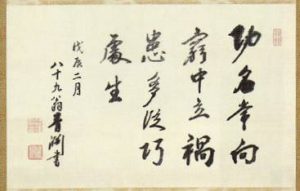 功名常向
窮中立禍
患多從巧
處生
戊辰二月
八十九翁青淵書